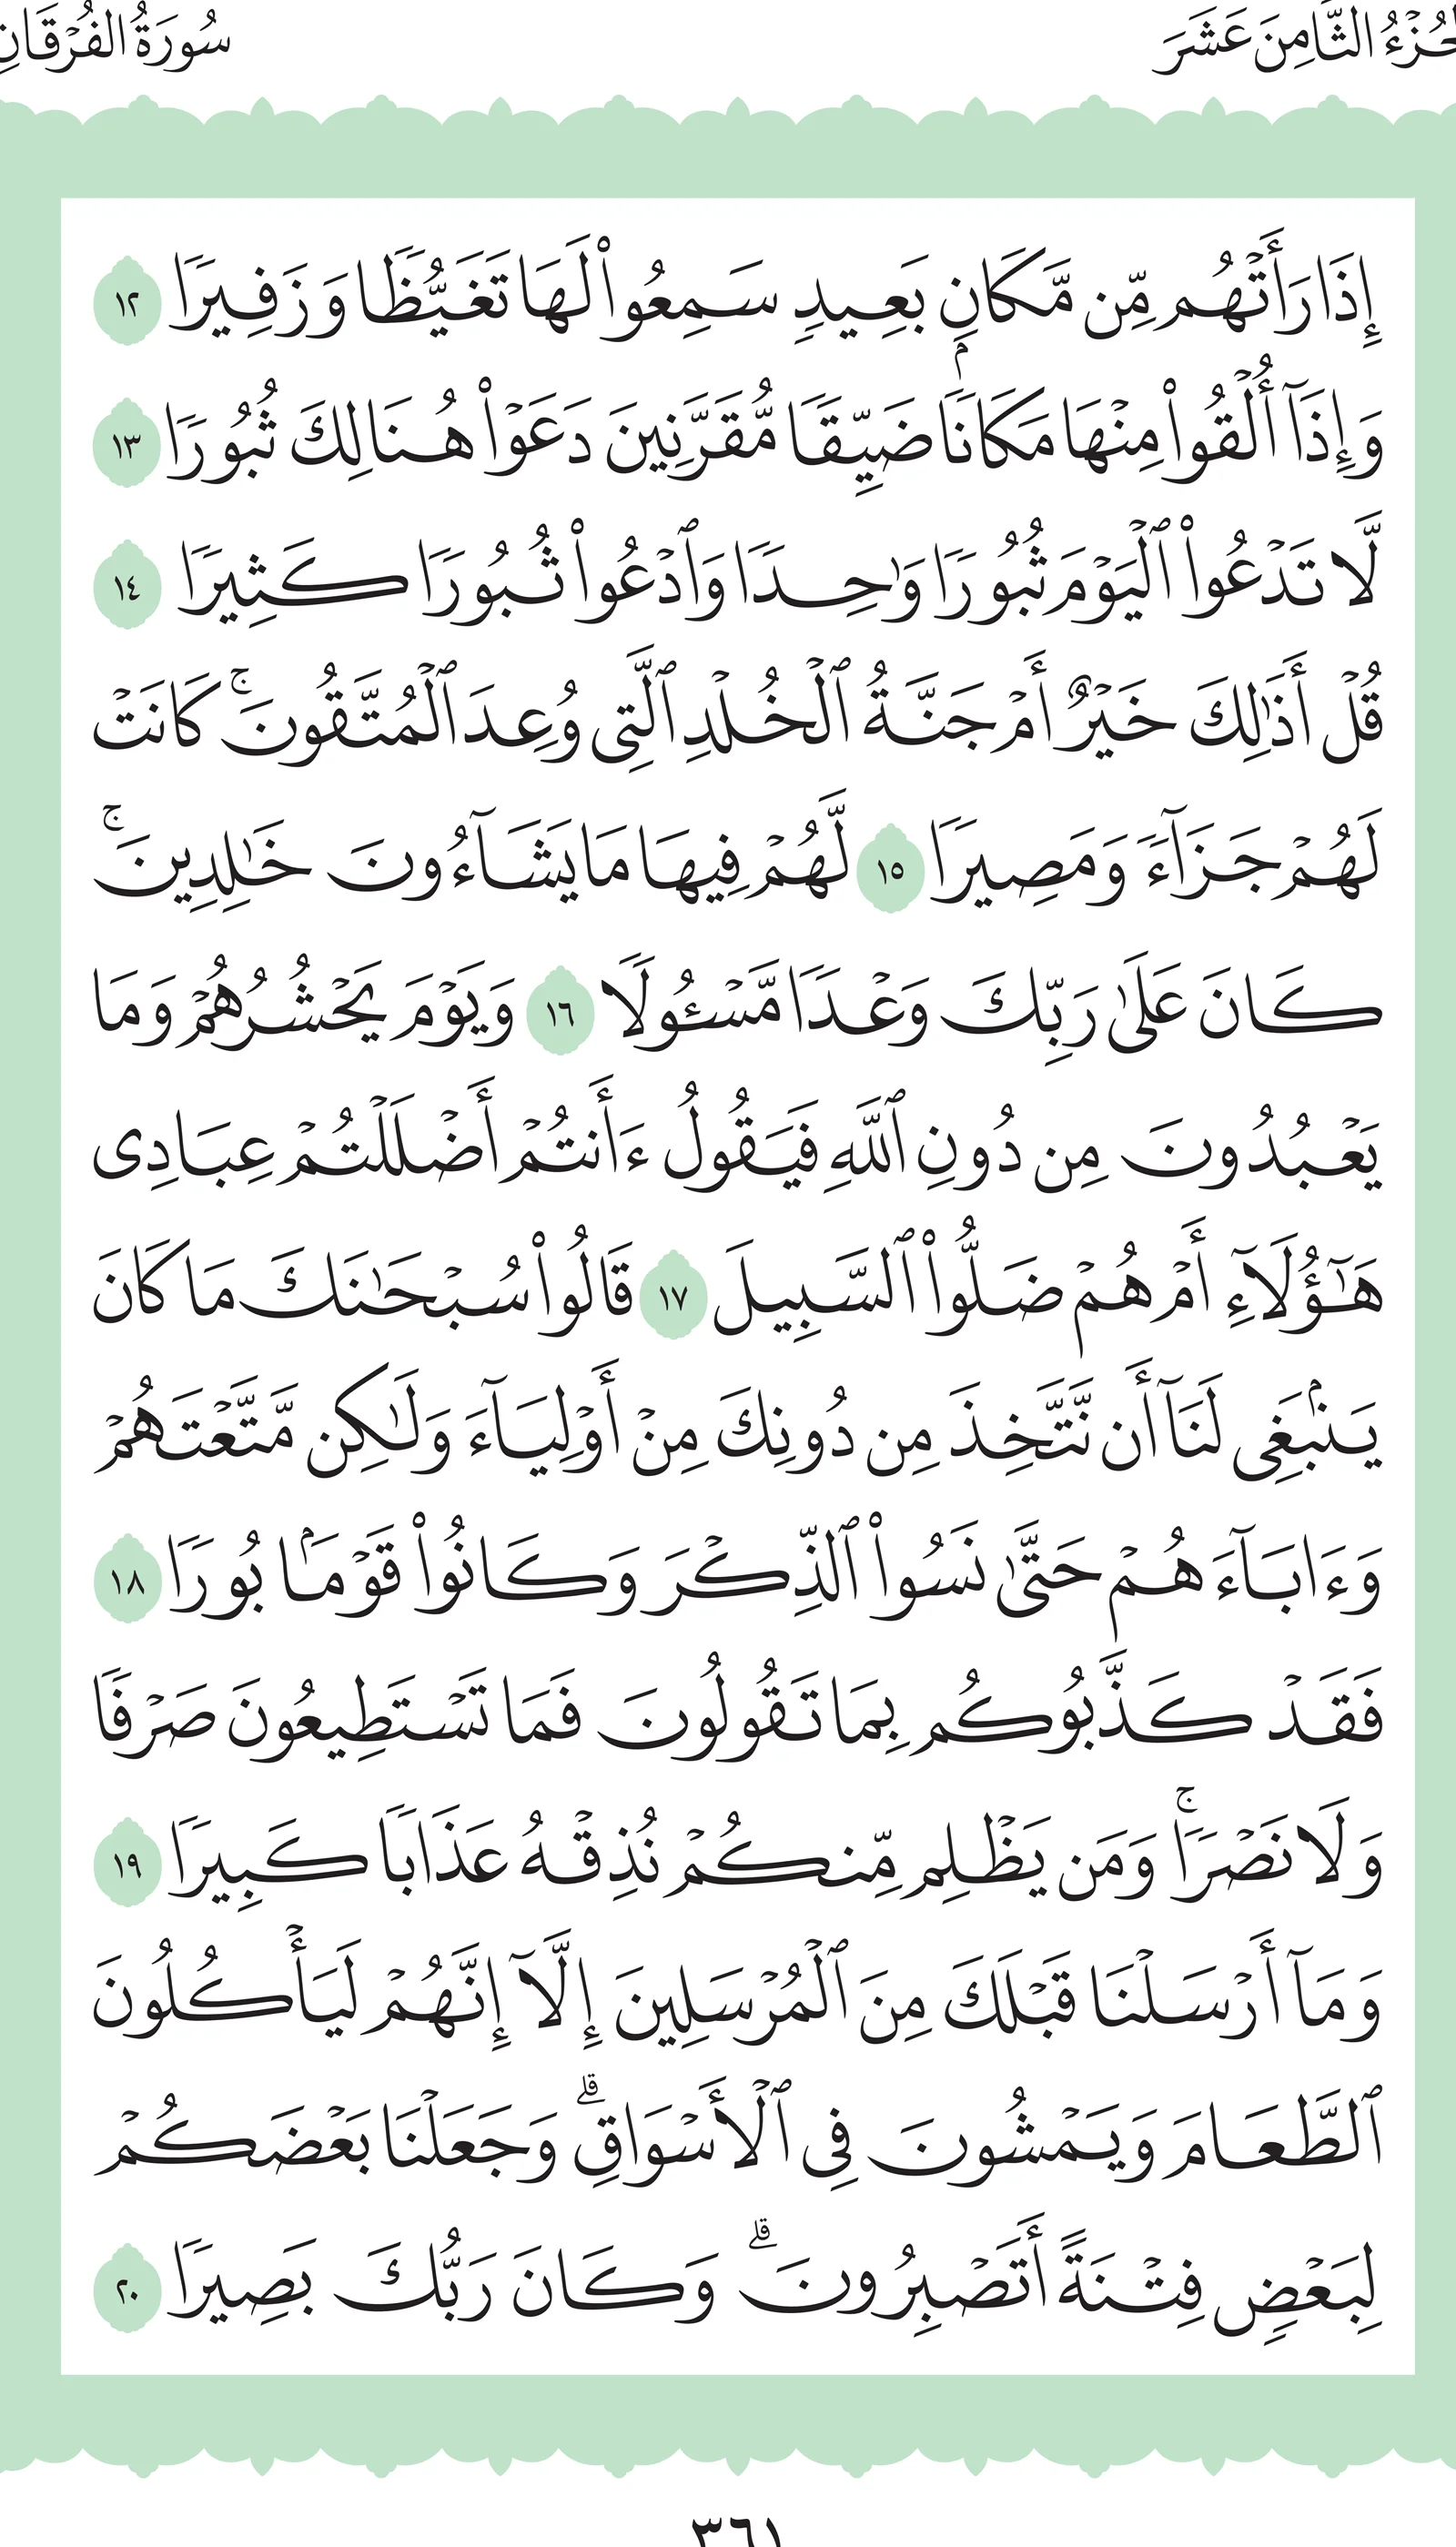 الجُزْءُ الثَّامِنَ عَشَرَ سُورَةُ الفُرْقَانِ
إِذَا رَأَتْهُم مِّن مَّكَانِۭ بَعِيدٖ سَمِعُواْ لَهَا تَغَيُّظٗا وَزَفِيرٗا ١٢
وَإِذَآ أُلۡقُواْ مِنۡهَا مَكَانٗا ضَيِّقٗا مُّقَرَّنِينَ دَعَوۡاْ هُنَالِكَ ثُبُورٗا ١٣
لَّا تَدۡعُواْ ٱلۡيَوۡمَ ثُبُورٗا وَٰحِدٗا وَٱدۡعُواْ ثُبُورٗا كَثِيرٗا ١٤
قُلۡ أَذَٰلِكَ خَيۡرٌ أَمۡ جَنَّةُ ٱلۡخُلۡدِ ٱلَّتِي وُعِدَ ٱلۡمُتَّقُونَۚ كَانَتۡ
لَهُمۡ جَزَآءٗ وَمَصِيرٗا ١٥ لَّهُمۡ فِيهَا مَا يَشَآءُونَ خَٰلِدِينَۚ
كَانَ عَلَىٰ رَبِّكَ وَعۡدٗا مَّسۡـُٔولٗا ١٦ وَيَوۡمَ يَحۡشُرُهُمۡ وَمَا
يَعۡبُدُونَ مِن دُونِ ٱللَّهِ فَيَقُولُ ءَأَنتُمۡ أَضۡلَلۡتُمۡ عِبَادِي
هَٰٓؤُلَآءِ أَمۡ هُمۡ ضَلُّواْ ٱلسَّبِيلَ ١٧ قَالُواْ سُبۡحَٰنَكَ مَا كَانَ
يَنۢبَغِي لَنَآ أَن نَّتَّخِذَ مِن دُونِكَ مِنۡ أَوۡلِيَآءَ وَلَٰكِن مَّتَّعۡتَهُمۡ
وَءَابَآءَهُمۡ حَتَّىٰ نَسُواْ ٱلذِّكۡرَ وَكَانُواْ قَوۡمَۢا بُورٗا ١٨
فَقَدۡ كَذَّبُوكُم بِمَا تَقُولُونَ فَمَا تَسۡتَطِيعُونَ صَرۡفٗا
وَلَا نَصۡرٗاۚ وَمَن يَظۡلِم مِّنكُمۡ نُذِقۡهُ عَذَابٗا كَبِيرٗا ١٩
وَمَآ أَرۡسَلۡنَا قَبۡلَكَ مِنَ ٱلۡمُرۡسَلِينَ إِلَّآ إِنَّهُمۡ لَيَأۡكُلُونَ
ٱلطَّعَامَ وَيَمۡشُونَ فِي ٱلۡأَسۡوَاقِۗ وَجَعَلۡنَا بَعۡضَكُمۡ
لِبَعۡضٖ فِتۡنَةً أَتَصۡبِرُونَۗ وَكَانَ رَبُّكَ بَصِيرٗا ٢٠
٣٦١